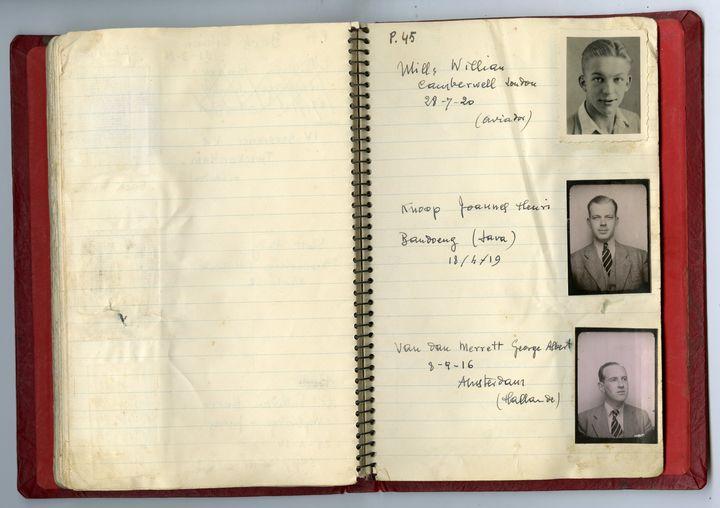 P. 45
Mills Willian
Camberwell London
28-7-20
(aviador)
Knoop Joannes Henri
Bandoeng (Java)
18/4/19
Van dan Merrett George Albert
8-9-16
Amsterdam
(Hallande)